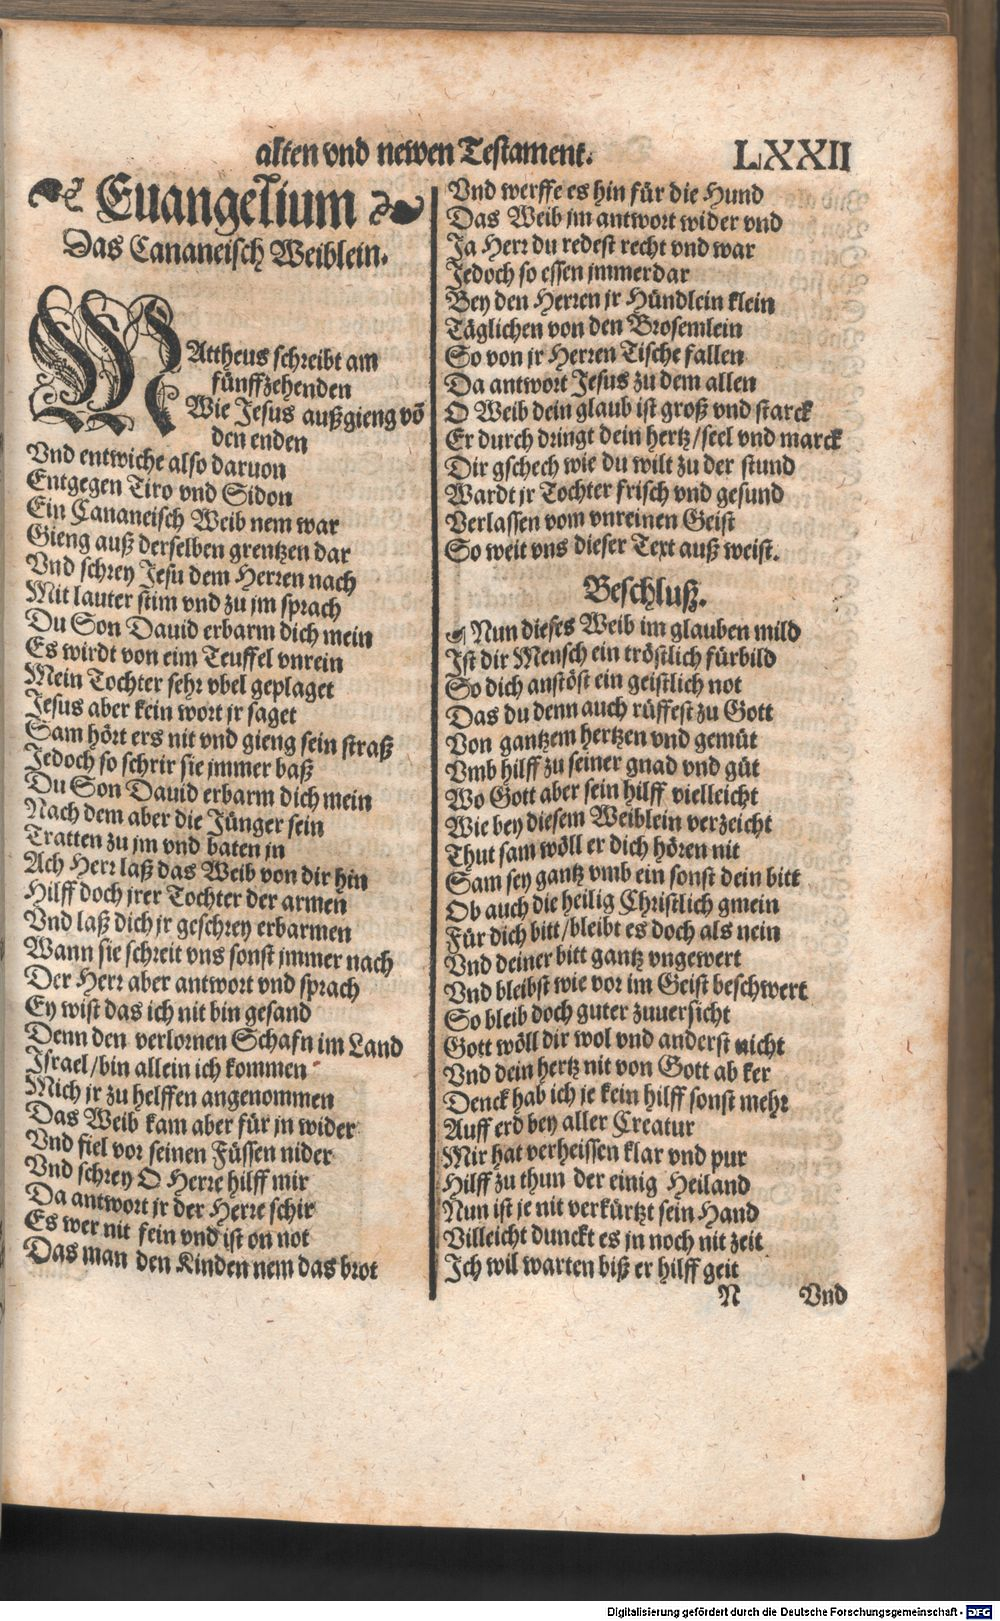 alten vnd newen Testament. LXXII
Euangelium
Das Cananeisch Weiblein.
MAttheus schreibt am
fünffzehenden
Wie Jesus außgieng võ
den enden
Vnd entwiche also daruon
Entgegen Tiro vnd Sidon
Ein Cananeisch Weib nem war
Gieng auß derselben grentzen dar
Vnd schrey Jesu dem Herren nach
Mit lauter stim vnd zu jm sprach
Du Son Dauid erbarm dich mein
Es wirdt von eim Teuffel vnrein
Mein Tochter sehr vbel geplaget
Jesus aber kein wort jr saget
Sam hört ers nit vnd gieng sein straß
Jedoch so schrir sie jmmer baß
Du Son Dauid erbarm dich mein
Nach dem aber die Jünger sein
Tratten zu jm vnd baten jn
Ach Herr laß das Weib von dir hin
Hilff doch jrer Tochter der armen
Vnd laß dich jr geschrey erbarmen
Wann sie schreit vns sonst jmmer nach
Der Herr aber antwort vnd sprach
Ey wist das ich nit bin gesand
Denn den verlornen Schafn im Land
Israel/bin allein ich kommen
Mich jr zu helffen angenommen
Das Weib kam aber für jn wider
Vnd fiel vor seinen Füssen nider
Vnd schrey O Herre hilff mir
Da antwort jr der Herre schir
Es wer nit fein vnd ist on not
Das man den Kinden nem das brot
Vnd werffe es hin für die Hund
Das Weib jm antwort wider vnd
Ja Herr du redest recht vnd war
Jedoch so essen jmmerdar
Bey den Herren jr Hündlein klein
Täglichen von den Brosemlein
So von jr Herren Tische fallen
Da antwort Jesus zu dem allen
O Weib dein glaub ist groß vnd starck
Er durch dringt dein hertz/seel vnd marck
Dir gschech wie du wilt zu der stund
Wardt jr Tochter frisch vnd gesund
Verlassen vom vnreinen Geist
So weit vns dieser Text auß weist.
Beschluß.
Nun dieses Weib im glauben mild
Ist dir Mensch ein tröstlich fürbild
So dich anstöst ein geistlich not
Das du denn auch rüffest zu Gott
Von gantzem hertzen vnd gemüt
Vmb hilff zu seiner gnad vnd güt
Wo Gott aber sein hilff vielleicht
Wie bey diesem Weiblein verzeicht
Thut sam wöll er dich hören nit
Sam sey gantz vmb ein sonst dein bitt
Ob auch die heilig Christlich gmein
Für dich bitt/bleibt es doch als nein
Vnd deiner bitt gantz vngewert
Vnd bleibst wie vor im Geist beschwert
So bleib doch guter zuuersicht
Gott wöll dir wol vnd anderst nicht
Vnd dein hertz nit von Gott ab ker
Denck hab ich je kein hilff sonst mehr
Auff erd bey aller Creatur
Mir hat verheissen klar vnd pur
Hilff zu thun der einig Heiland
Nun ist je nit verkürtzt sein Hand
Villeicht dunckt es jn noch nit zeit
Ich wil warten biß er hilff geit
N Vnd
Digitalisierung gefördert durch die Deutsche Forschungsgemeinschaft - DFG